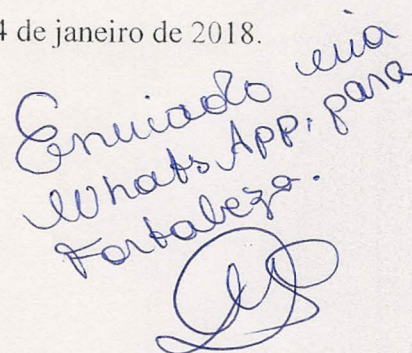 4 de janeiro de 2018.
Enviado via
WhatsApp, para
Fortaleza.